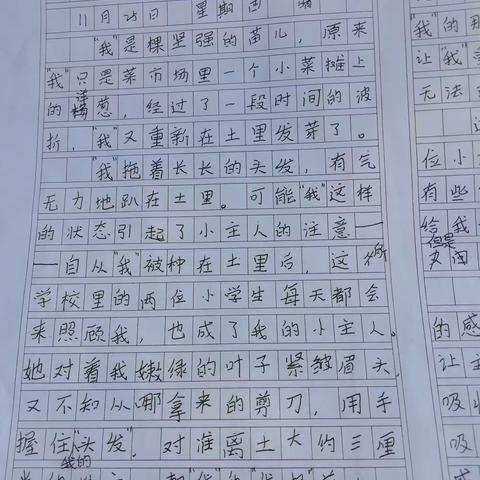 11月25日 星期四 晴
"我"是棵坚强的苗儿，原来
"我"只是菜市场里一个小菜摊上
的洋葱，经过了一段时间的波
折，"我"又重新在土里发芽了。
"我"拖着长长的头发，有气
无力地趴在土里。可能"我"这样
的状态引起了小主人的注意——
——自从"我"被种在土里后，这所
学校里的两位小学生每天都会
来照顾我，也成了我的小主人。
她对着我嫩绿的叶子紧皱眉头，
又不知从哪拿来的剪刀，用手
握住我的"头发"，对准离土大约三厘
"我"的
让"我"
无法
位小
有些
给我
但是
的感
让主
吸收
吸
感